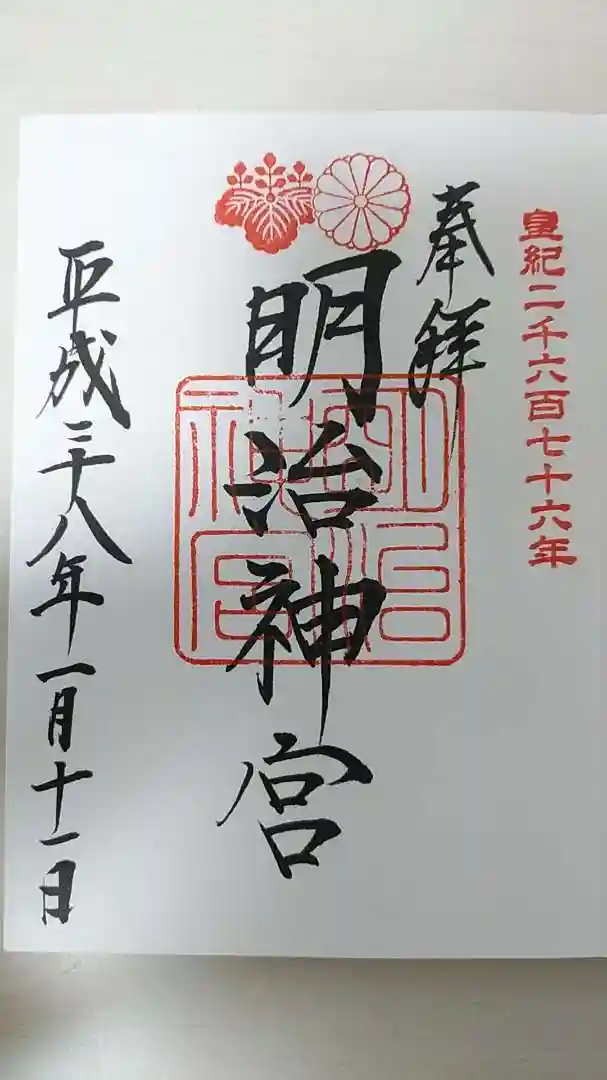 皇紀二千六百七十六年
奉拝
明治神宮
明治
神宮
平成二十八年一月十一日